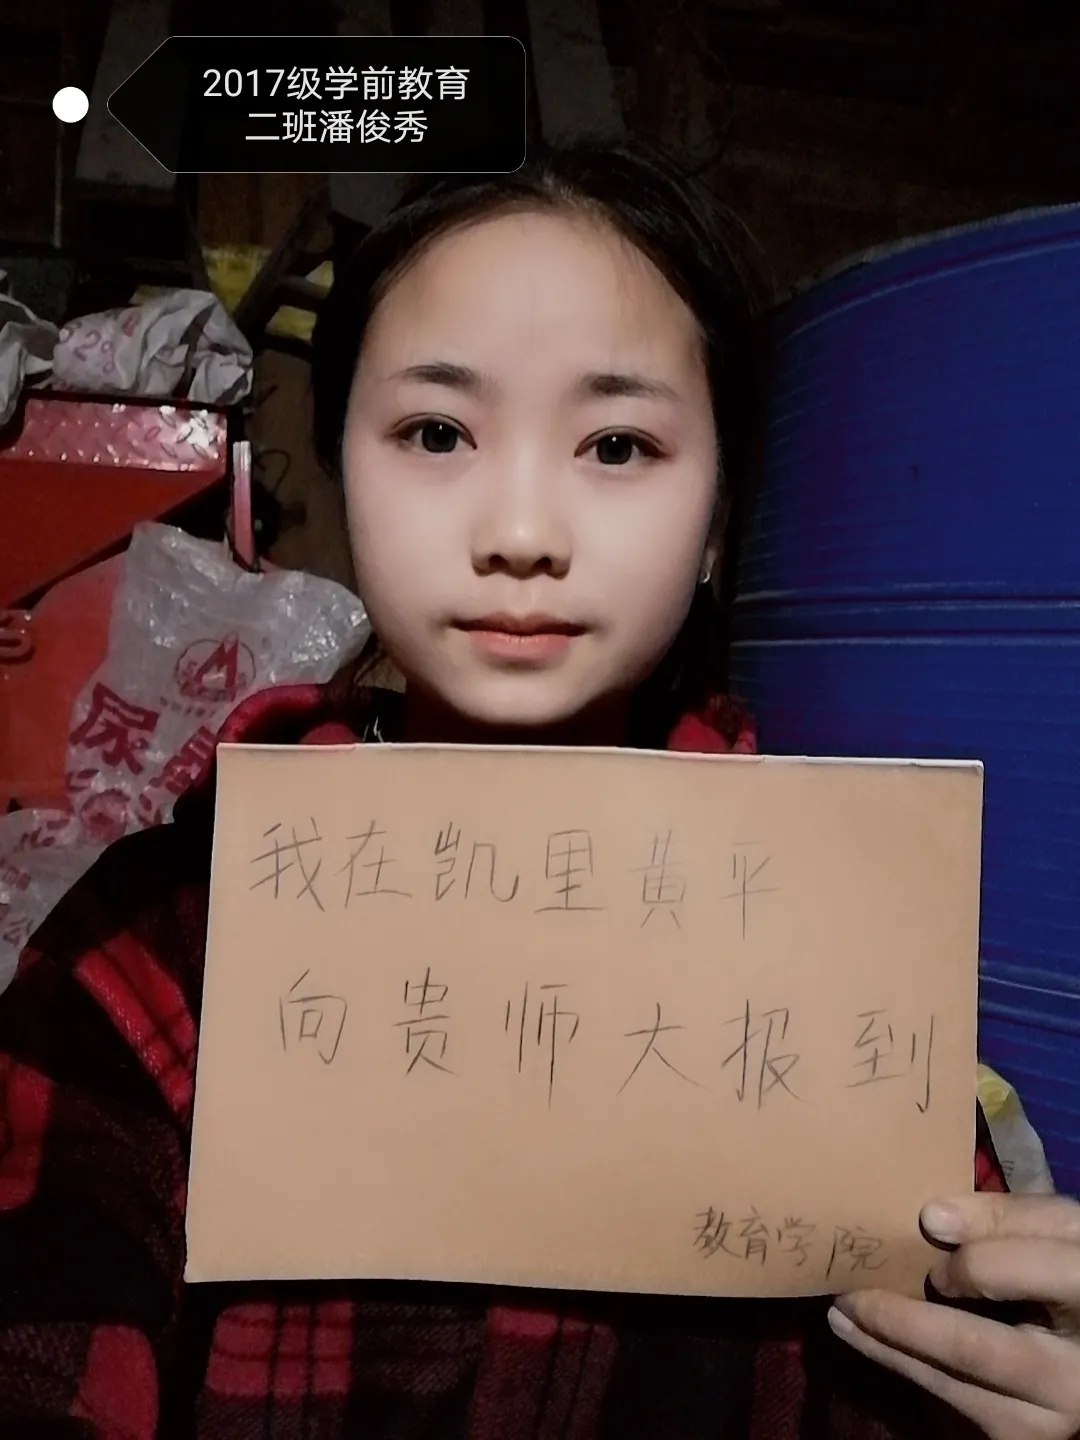 2017级学前教育
二班潘俊秀
尿
我在凯里黄平
向贵师大报到
教育学院